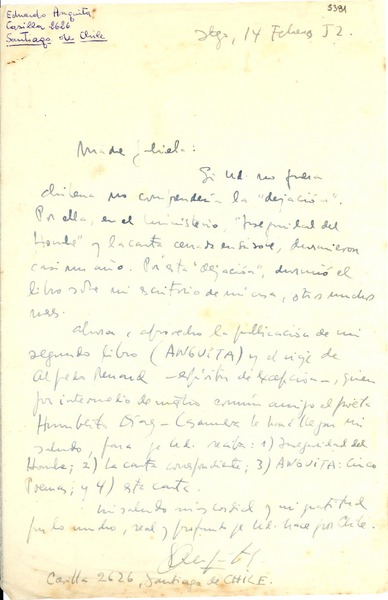 Eduardo Anguita
Casilla 2626
Santiago de Chile
5391
Stgo, 14 Febrero 52.
Madre Gabriela:
Si Ud. no fuera
chilena no comprendería la "dejación".
Por ella, en el ministerio, "Inseguridad del
Hombre" y la carta cerrada en sobre, durmieron
casi un año. Por esta "dejación", durmió el
libro sobre mi escritorio de mi casa, otros muchos
meses.
Ahora, aprovecho la publicación de mi
segundo libro (ANGUITA) y el viaje de
Alfredo Renard - espíritu de excepción -, quien
por intermedio de nuestro común amigo el poeta
Humberto Díaz-Casanueva le hará llegar mi
saludo, para que Ud. reciba: 1) Inseguridad del
Hombre; 2) La carta correspondiente; 3) ANGUITA: Cinco
Poemas; y 4) esta carta.
Un saludo más cordial y mi gratitud
por lo mucho, real y profundo que Ud. hace por Chile.
Casilla 2626, Santiago de CHILE.